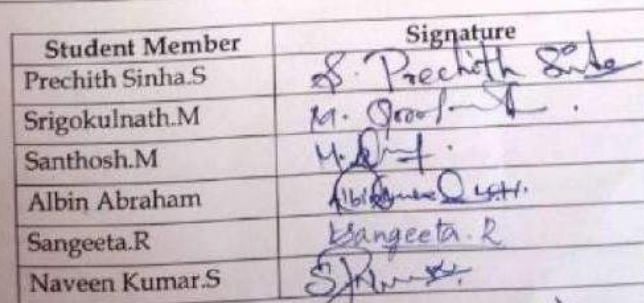 Student Member Signature
Prechith Sinha.S S. Prechith Sinha
Srigokulnath.M M.
Santhosh.M M.
Albin Abraham Albin
Sangeeta.R Sangeeta.R
Naveen Kumar.S